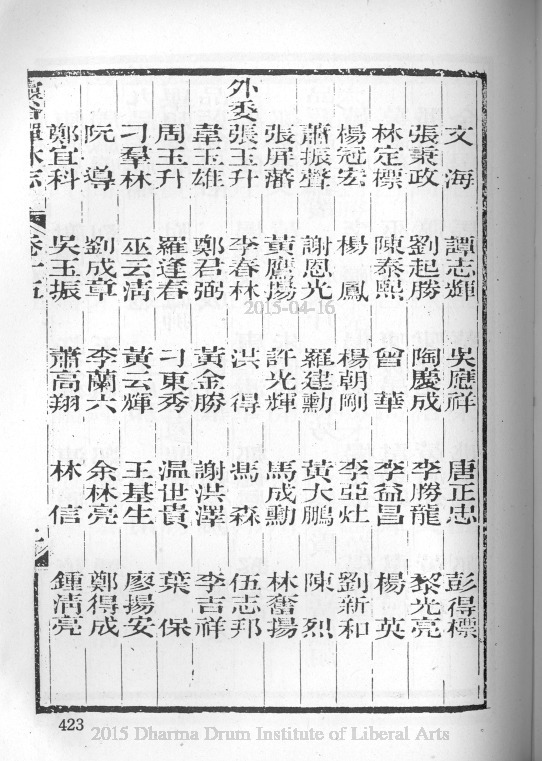 文海 譚志輝 吳應祥 唐正忠 彭得標
張秉政 劉起勝 陶慶成 李勝龍 黎光亮
林定標 陳泰熙 曾華 李益昌 楊英
楊冠宏 楊鳳 楊朝剛 李亞灶 劉新和
蕭振聲 謝恩光 羅建勳 黃大鵬 陳烈
張屏藩 黃鷹揚 許光輝 馬成勳 林奮揚
外委張玉升 李春林 洪得 馮森 伍志邦
韋玉雄 鄭君弼 黃金勝 謝洪澤 李吉祥
周玉升 羅逢春 刁東秀 温世貴 葉保
刁羣林 巫云清 黃云輝 王基生 廖揚安
阮導 劉成章 李蘭六 余林亮 鄭得成
鄭宜科 吳玉振 蕭高翔 林信 鍾清亮
卷十五
423
2015-04-16
2015 Dharma Drum Institute of Liberal Arts